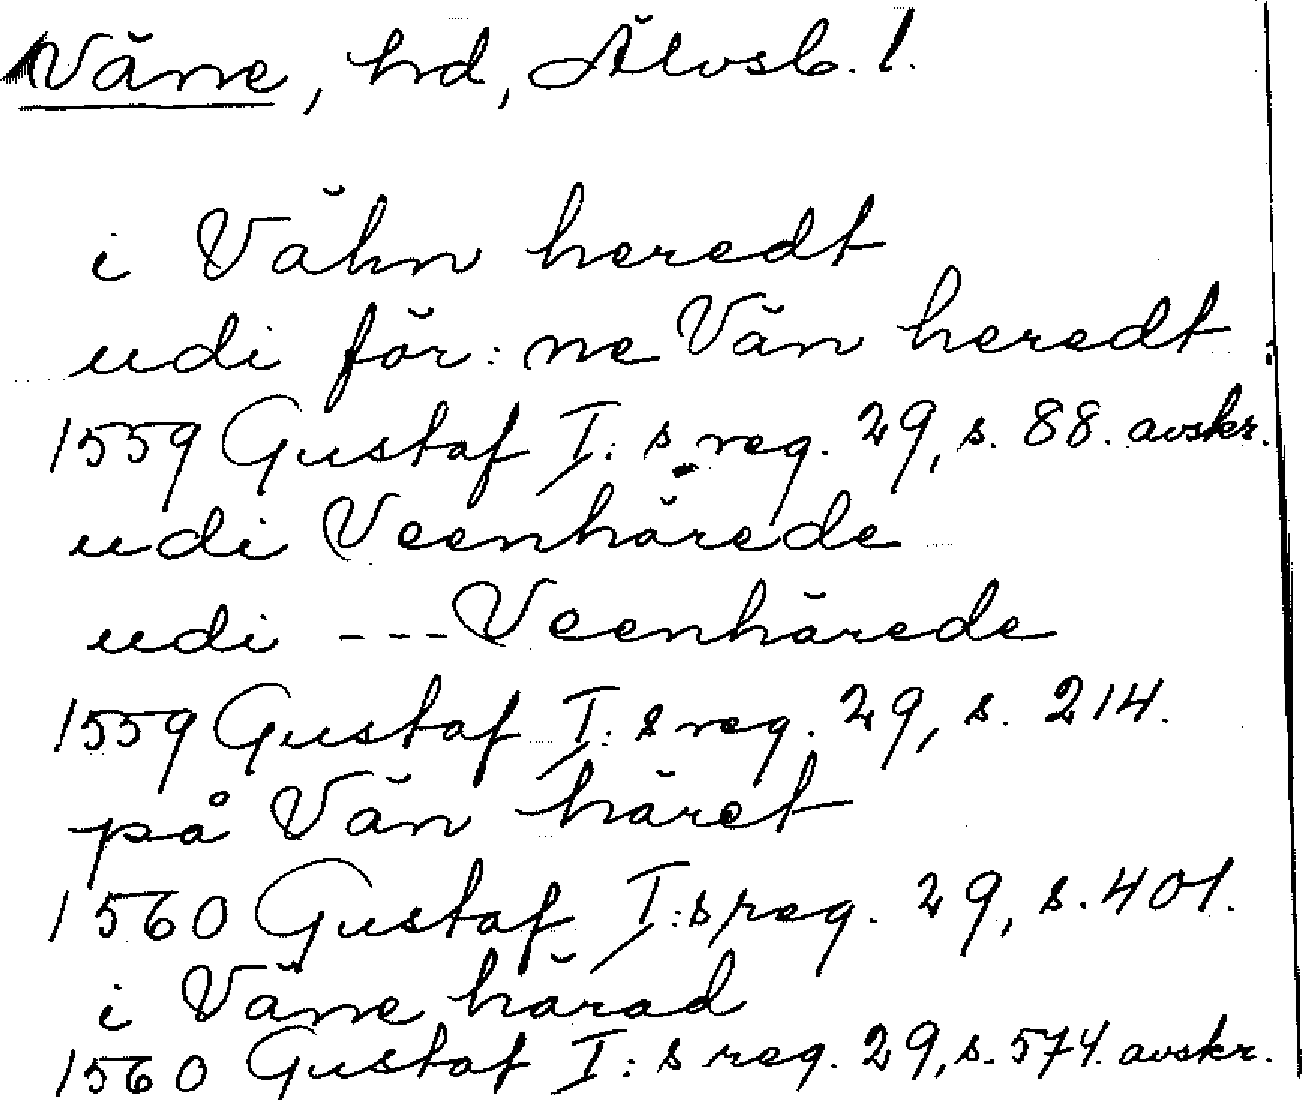 Väne, hd, Älvsb. l.
i Vähn heredt
udi för: ne Vän heredt
1559 Gustaf I: s reg. 29, s. 88. avskr.
udi Veenhärede
udi --- Veenhärede
1559 Gustaf I: s reg. 29, s. 214.
på Vän häret
1560 Gustaf I: s reg. 29, s. 401.
i Väne härad
1560 Gustaf I: s reg. 29, s. 574. avskr.